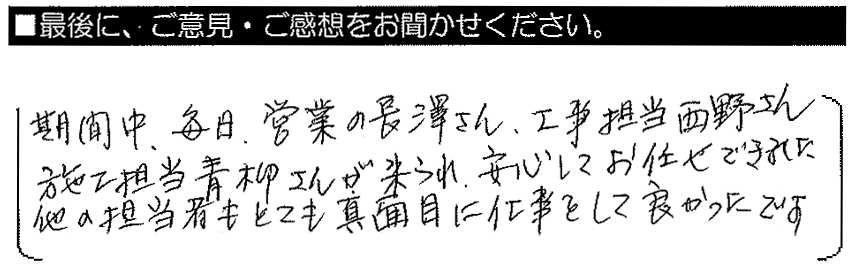 ■最後に、ご意見・ご感想をお聞かせください。
期間中、毎日、営業の長澤さん、工事担当西野さん
施工担当青柳さんが来られ、安心してお任せできました
他の担当者もとても真面目に仕事をして良かったです